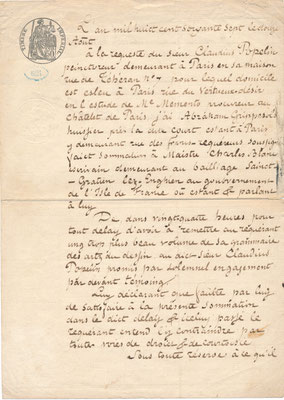 L'an mil huict cent soixante sept le douze
Aoust
à la requeste du sieur Claudius Popelin
peinctureur demeurant à Paris en sa maison
rue de Téhéran nº 7 pour lequel domicile
est esleu à Paris rue du Vertueux-désir
en l'estude de Me procureur au
Châtelet de Paris j'ai Abraham
huissier près la dite court estant à Paris
y demeurant rue des requereurs soussigné
faict sommation à Maistre Charles Blanc
escrivain demeurant au bailliage Sainct
Gratien lez-Enghien au gouvernement
de l'Isle de France où estant & parlant
à luy
De dans vingtquatre heures pour
tout delay d'avoir à remettre au requérant
ung des plus beau volume de sa grammaire
des arts du dessin au dict sieur Claudius
Popelin promis par solemnel engagement
par devant témoing
Luy déclarant que faulte par luy
de satisfaire à la présente Sommation
dans le dict delay & iceluy passé le
requerant entend l'y contraindre par
toutes voies de droict & de courtoisie
Sous toute réserve à ce qu'il